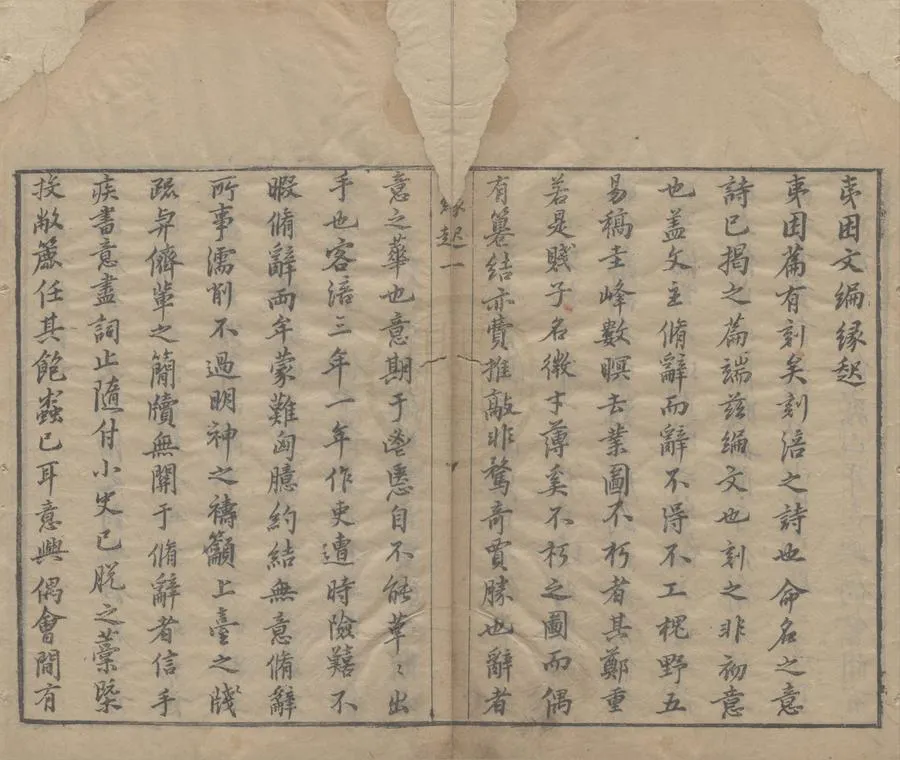 夷困文編緣起
夷困篇有刻矣刻涪之詩也命名之意
詩已揭之篇端茲編文也刻之非初意
也蓋文主脩辭而辭不得不工枕野五
易稿圭峰數瞑去業圖不朽者其鄭重
若是賤子名微才薄奚不朽之圖而偶
有籑結亦費推敲非騖奇賈勝也辭者
緣起 一
意之華也意期于鬯悉自不能草〻出
手也客涪三年一年作吏遭時險囏不
暇脩辭兩年蒙難匈臆約結無意脩辭
所事濡削不過明神之禱籲上臺之牋
疏與儕輩之簡牘無關于脩辭者信手
疾書意盡詞止隨付小史已脫之藁槩
投敝簏任其飽蠹已耳意興偶會間有